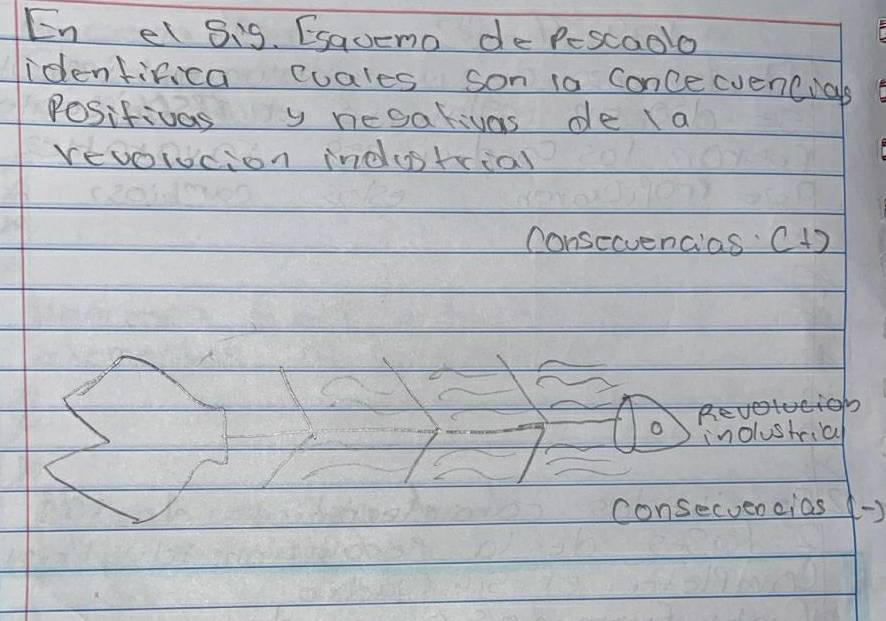 En el Sig. Esquema de Pescado
identifica cuales son la Concecuencias
Positivas y negativas de la
revolucion industrial
Consecuencias (+)
Revolucion
industrial
Consecuencias (-)